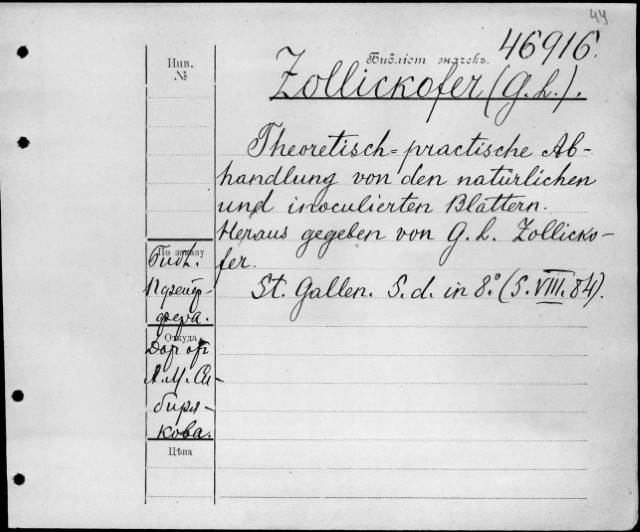 44
46916.
Инв.
№
Библіот значекъ.
Zollickofer (G. L.).
Theoretisch-practische Ab-
handlung von den natürlichen
und inoculierten Blättern.
Heraus gegeben von G. L. Zollicko-
fer.
St. Gallen. S. d. in 8.° (S. VIII. 84).
По заказу
Библ.
Пфейф-
фера.
Откуда
Дар от
А. М. Си-
биря-
кова.
Цѣна